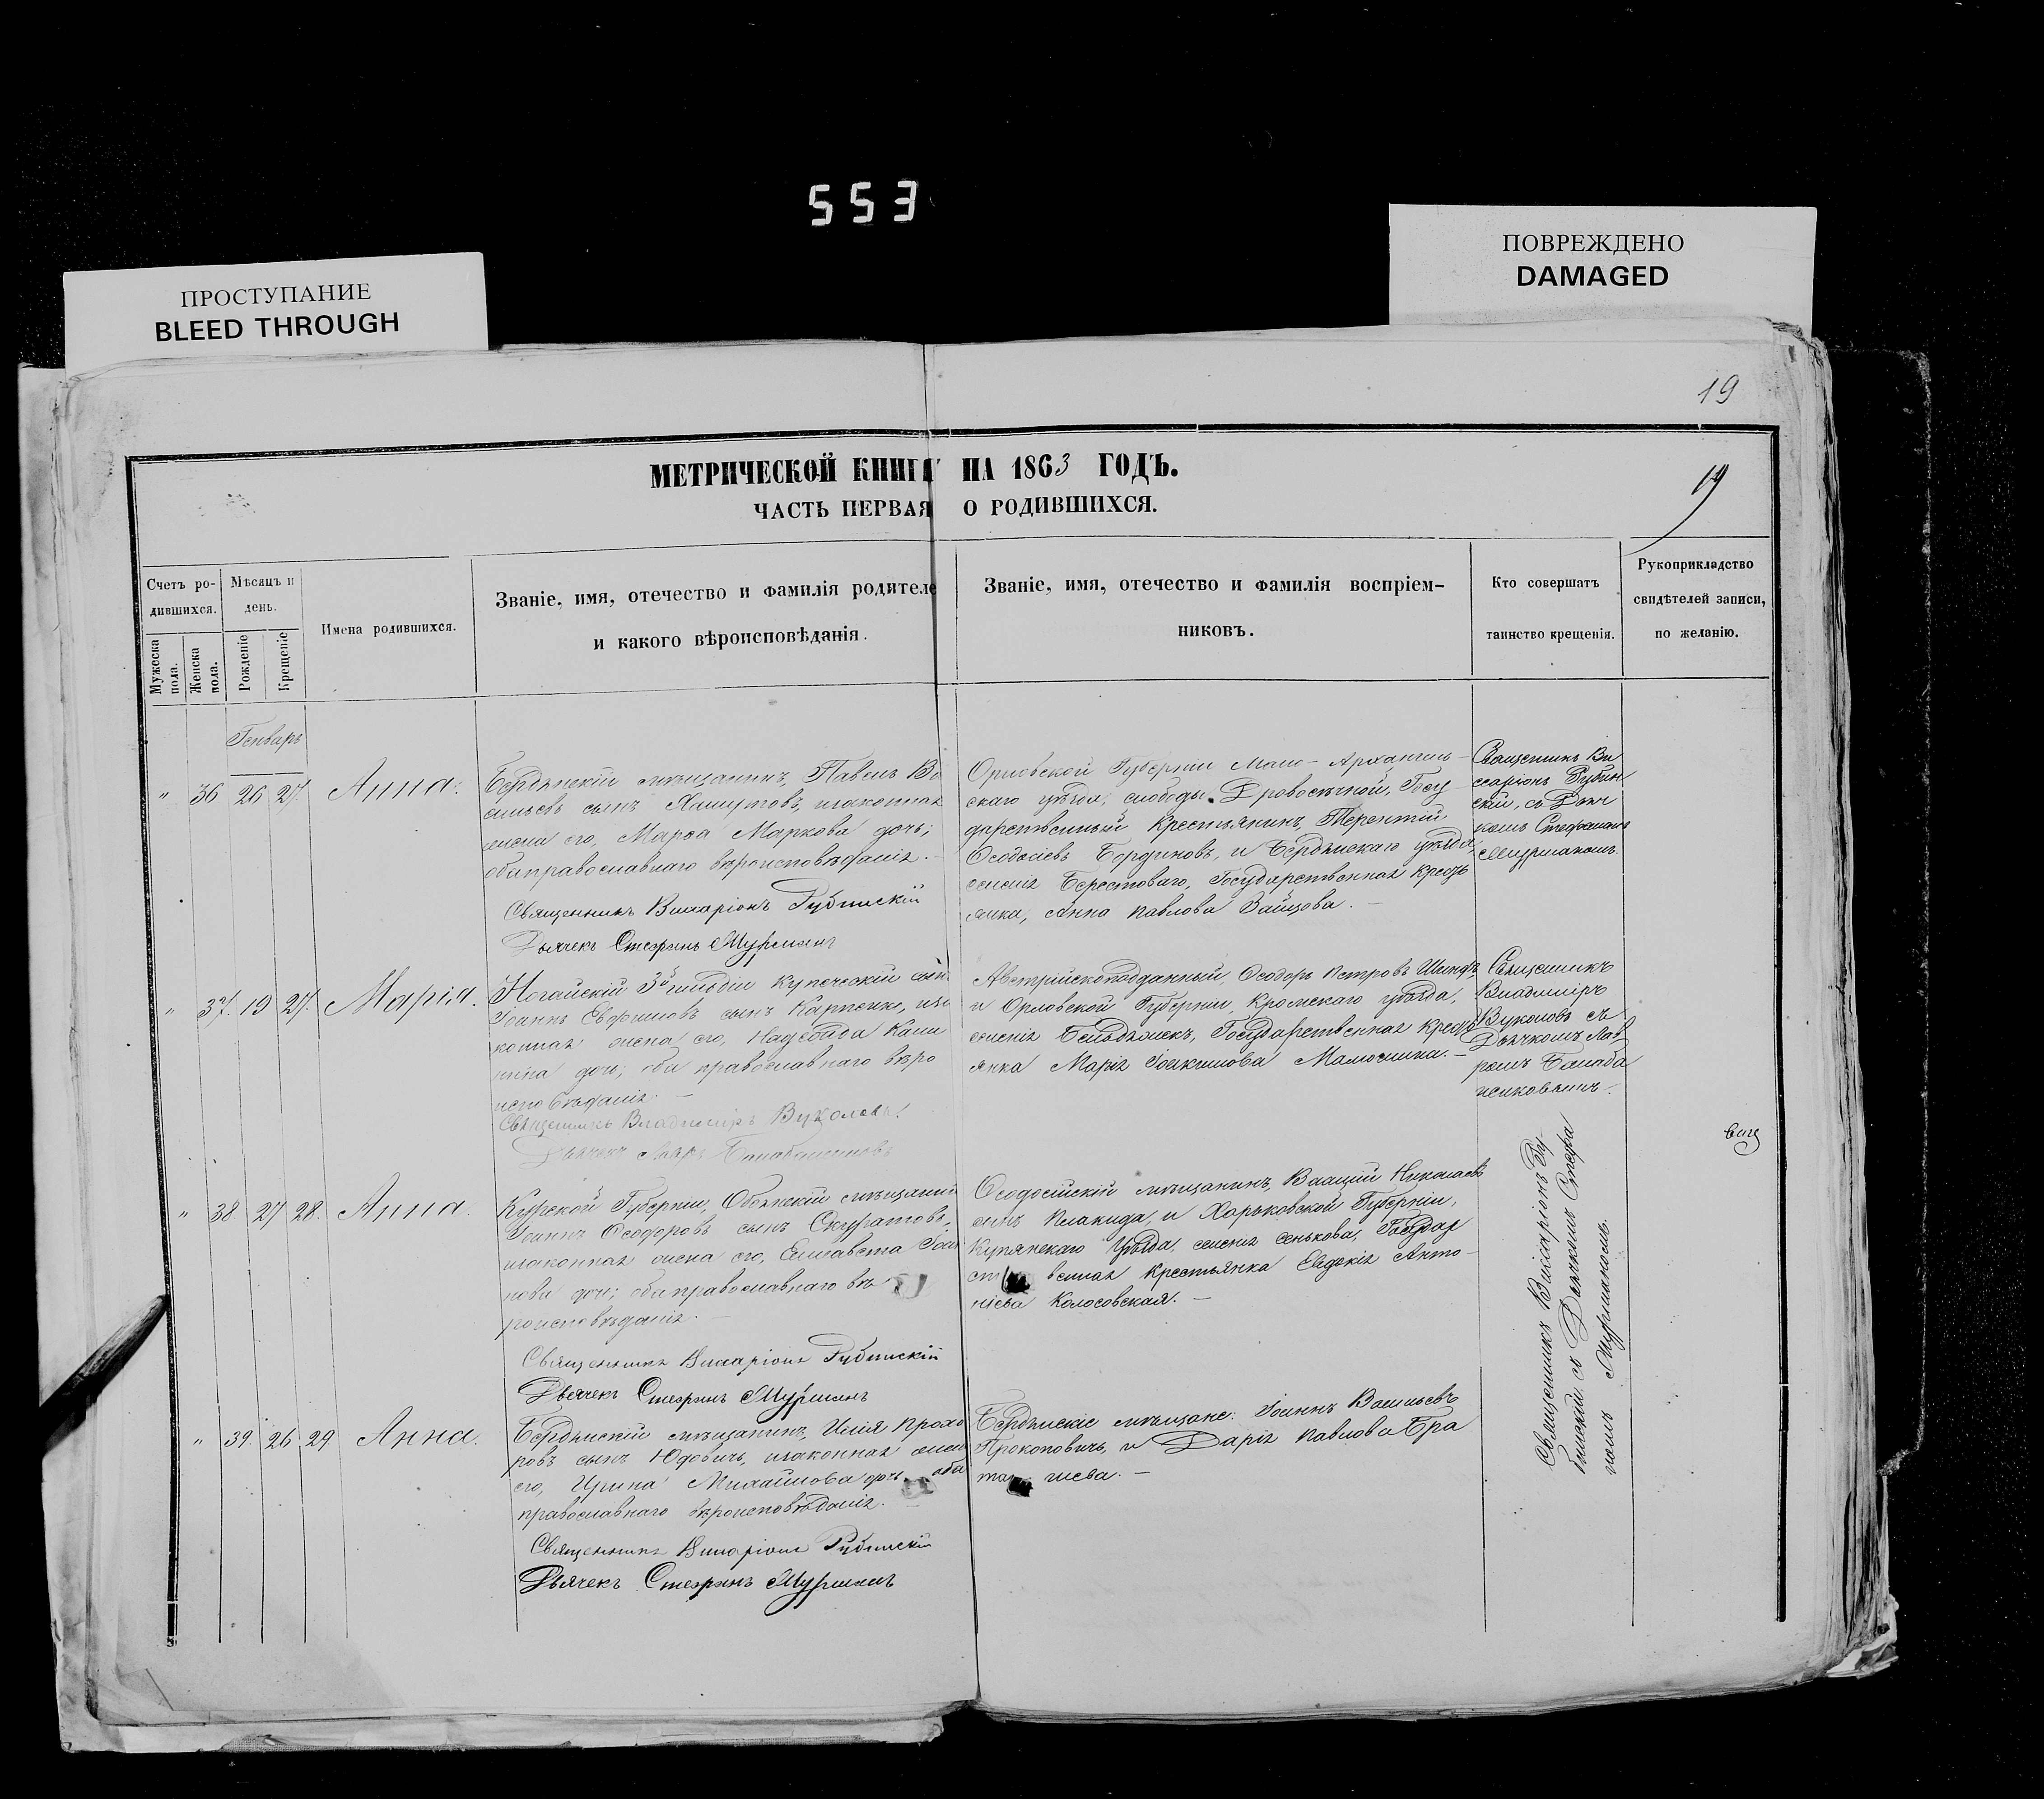 553
ПРОСТУПАНИЕ
BLEED THROUGH
ПОВРЕЖДЕНО
DAMAGED
19
МЕТРИЧЕСКОЙ КНИГИ НА 1863 ГОДЪ.
19
ЧАСТЬ ПЕРВАЯ О РОДИВШИХСЯ.
Счетъ ро-
дившихся.
Мужеска пола.
Женска пола.
Мѣсяцъ и
день.
Рожденіе
Крещеніе
Имена родившихся.
Званіе, имя, отечество и фамилія родителе
и какого вѣроисповѣданія.
Званіе, имя, отечество и фамилія воспріем-
никовъ.
Кто совершатъ
таинство крещенія.
Рукоприкладство
свидѣтелей записи,
по желанію.
Генварь
" 36 26 27 Анна.
Бердянскій мѣщанинъ, Павелъ Ва
сильевъ сынъ
жена его, Марѳа Маркова дочь;
оба православнаго вѣроисповѣданія.
Священникъ Виссаріонъ
Дьячекъ Стефанъ Мурманъ
Орловской Губерніи Мало-Архангель-
скаго уѣзда, слободы Дровосѣчной, Госу
дарственный Крестьянинъ, Терентій
Ѳеодосіевъ и Бердянскаго уѣзда,
селенія Берестоваго, Государственная Крестъ
янка, Анна Павлова Зайцова. —
Священникъ Ви
ссаріонъ
скій, съ Дьяч
комъ Стефаномъ
Мурманомъ.
" 37. 19 27. Марія.
Ногайскій 3й гильдіи купеческій сынъ
Іоаннъ Евфимовъ сынъ Карпенко, иза
конная жена его, Надежда
нина дочь; оба православнаго вѣро
исповѣданія. —
Священникъ Владиміръ Вуколовъ
Дьячекъ
Австрійскоподданный, Ѳеодоръ Петровъ
и Орловской Губерніи, Кромскаго уѣзда,
селенія Государственная Крестъ
янка Марія Іоакимова —
Священникъ
Владиміръ
Вуколовъ съ
Дьячкомъ Лав
ромъ
вац
" 38 27 28. Анна.
Курской Губерніи, Обоянскій мѣщанинъ
Іоаннъ Ѳеодоровъ сынъ Скуратовъ,
изаконная жена его, Елисавета Іоан
нова дочь; оба православнаго вѣ
роисповѣданія. —
Священникъ Виссаріонъ
Дьячекъ Стефанъ Мурманъ
Ѳеодосійскій мѣщанинъ, Николаевъ
сынъ Плакида, и Харьковской Губерніи,
Купянскаго Уѣзда, селенія Сенькова, Государ
ст венная Крестьянка Евдокія Анто-
ніева Колосовская. —
Священникъ Виссаріонъ
съ Дьячкомъ Стефа
номъ Мурманомъ.
" 39. 26 29 Анна.
Бердянскій мѣщанинъ, Илія Прохо
ровъ сынъ Юдовичъ, изаконная жена
его, Ирина Михайлова дочь оба
православнаго вѣроисповѣданія.
Священникъ Виссаріонъ
Дьячекъ Стефанъ Мурманъ
Бердянскіе мѣщане: Іоаннъ Васильевъ
Прокоповичъ, и Дарія Павлова